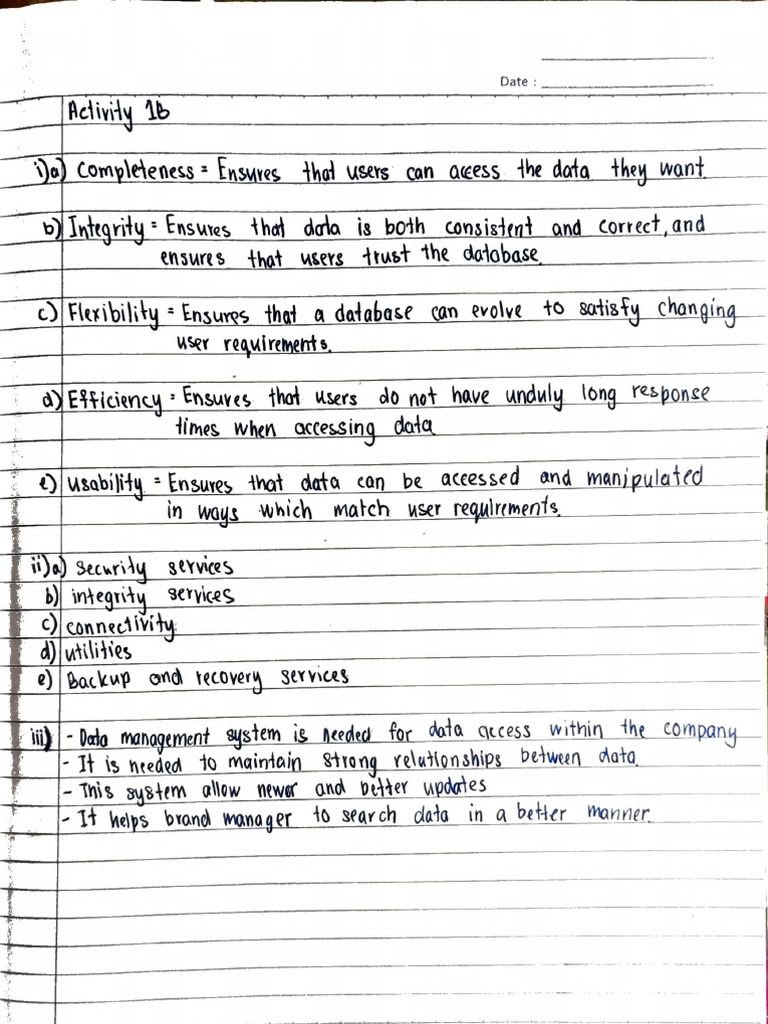 Date :
Activity 1B
i)a) Completeness = Ensures that users can access the data they want.
b) Integrity = Ensures that data is both consistent and correct, and
ensures that users trust the database.
c) Flexibility = Ensures that a database can evolve to satisfy changing
user requirements.
d) Efficiency = Ensures that users do not have unduly long response
times when accessing data
e) Usability = Ensures that data can be accessed and manipulated
in ways which match user requirements.
ii)a) Security services
b) integrity services
c) connectivity
d) utilities
e) Backup and recovery services
iii) - Data management system is needed for data access within the company
- It is needed to maintain strong relationships between data.
- This system allow newer and better updates
- It helps brand manager to search data in a better manner.